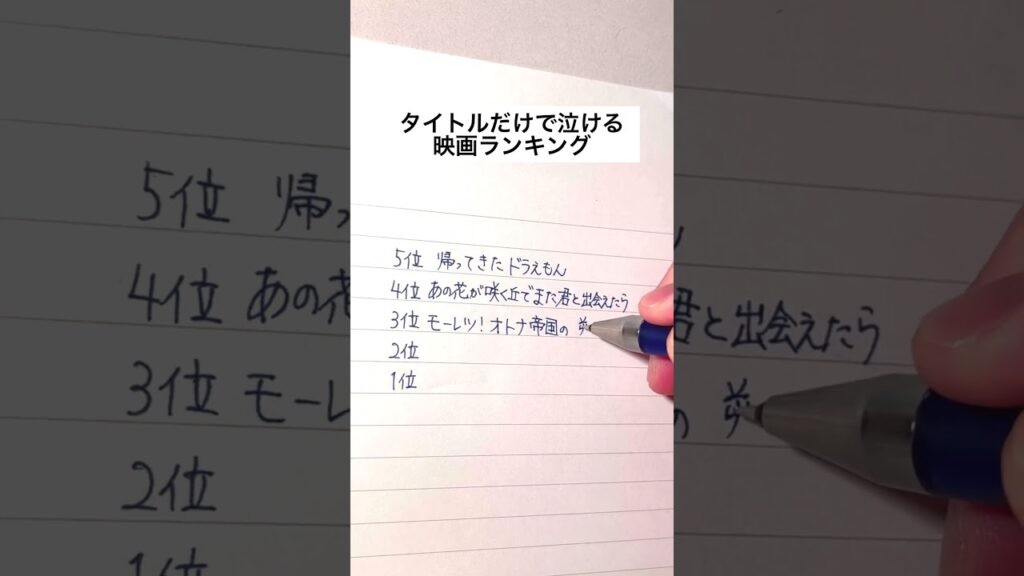 タイトルだけで泣ける
映画ランキング
5位 帰ってきたドラえもん
4位 あの花が咲く丘でまた君と出会えたら
3位 モーレツ！オトナ帝国の
2位
1位